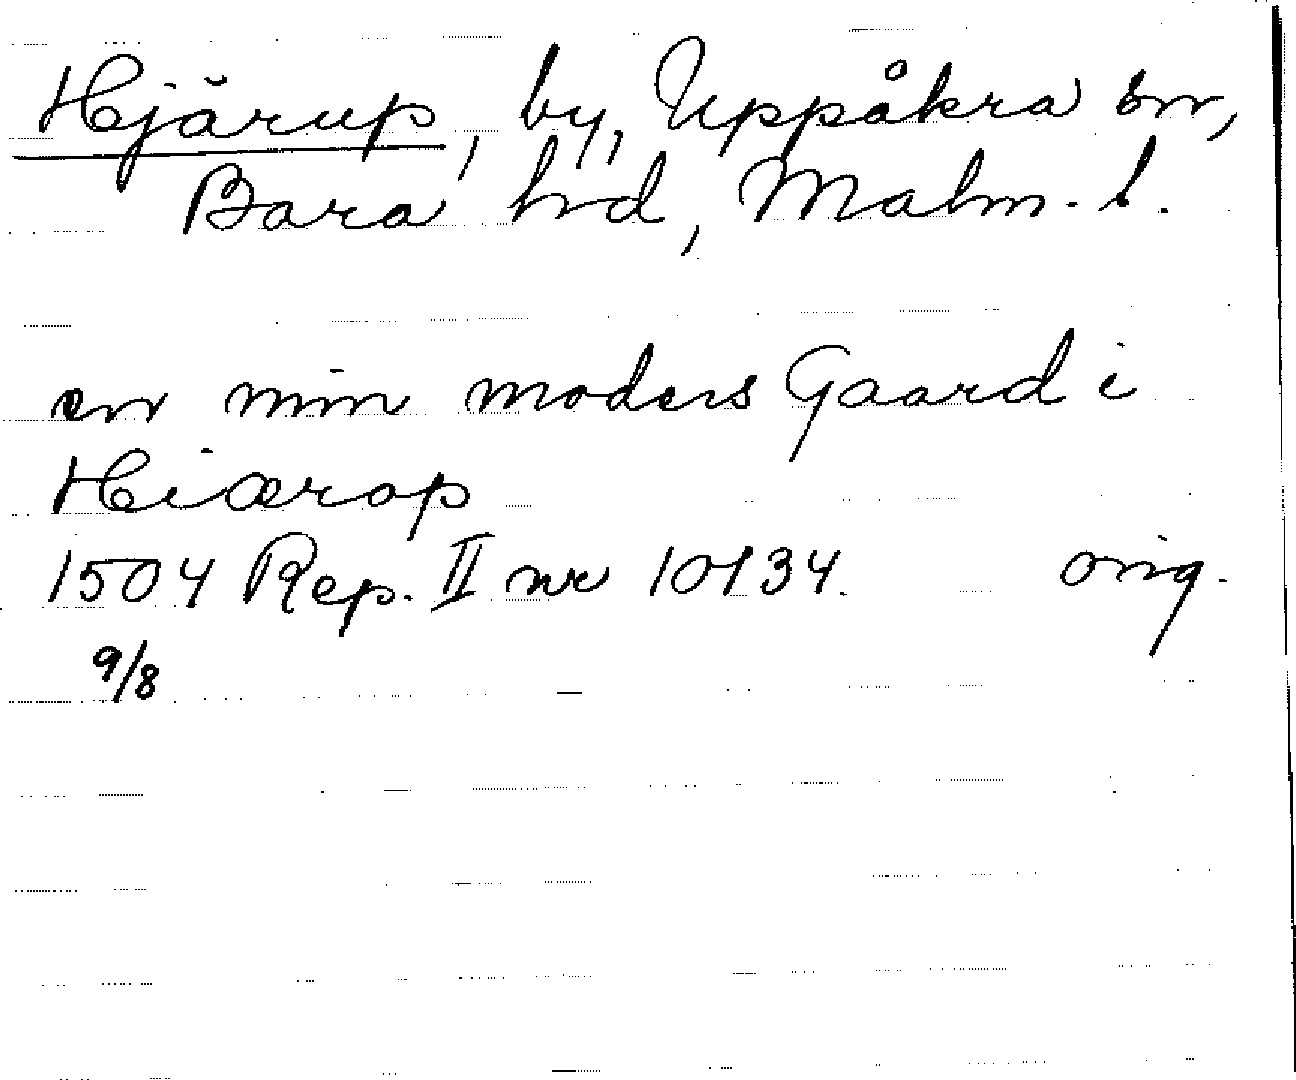 Hjärup, by, Uppåkra sn,
Bara hrd, Malm. l.
en min moders Gaard i
Hiærop
1504 Rep. II nr 10134. orig.
9/8